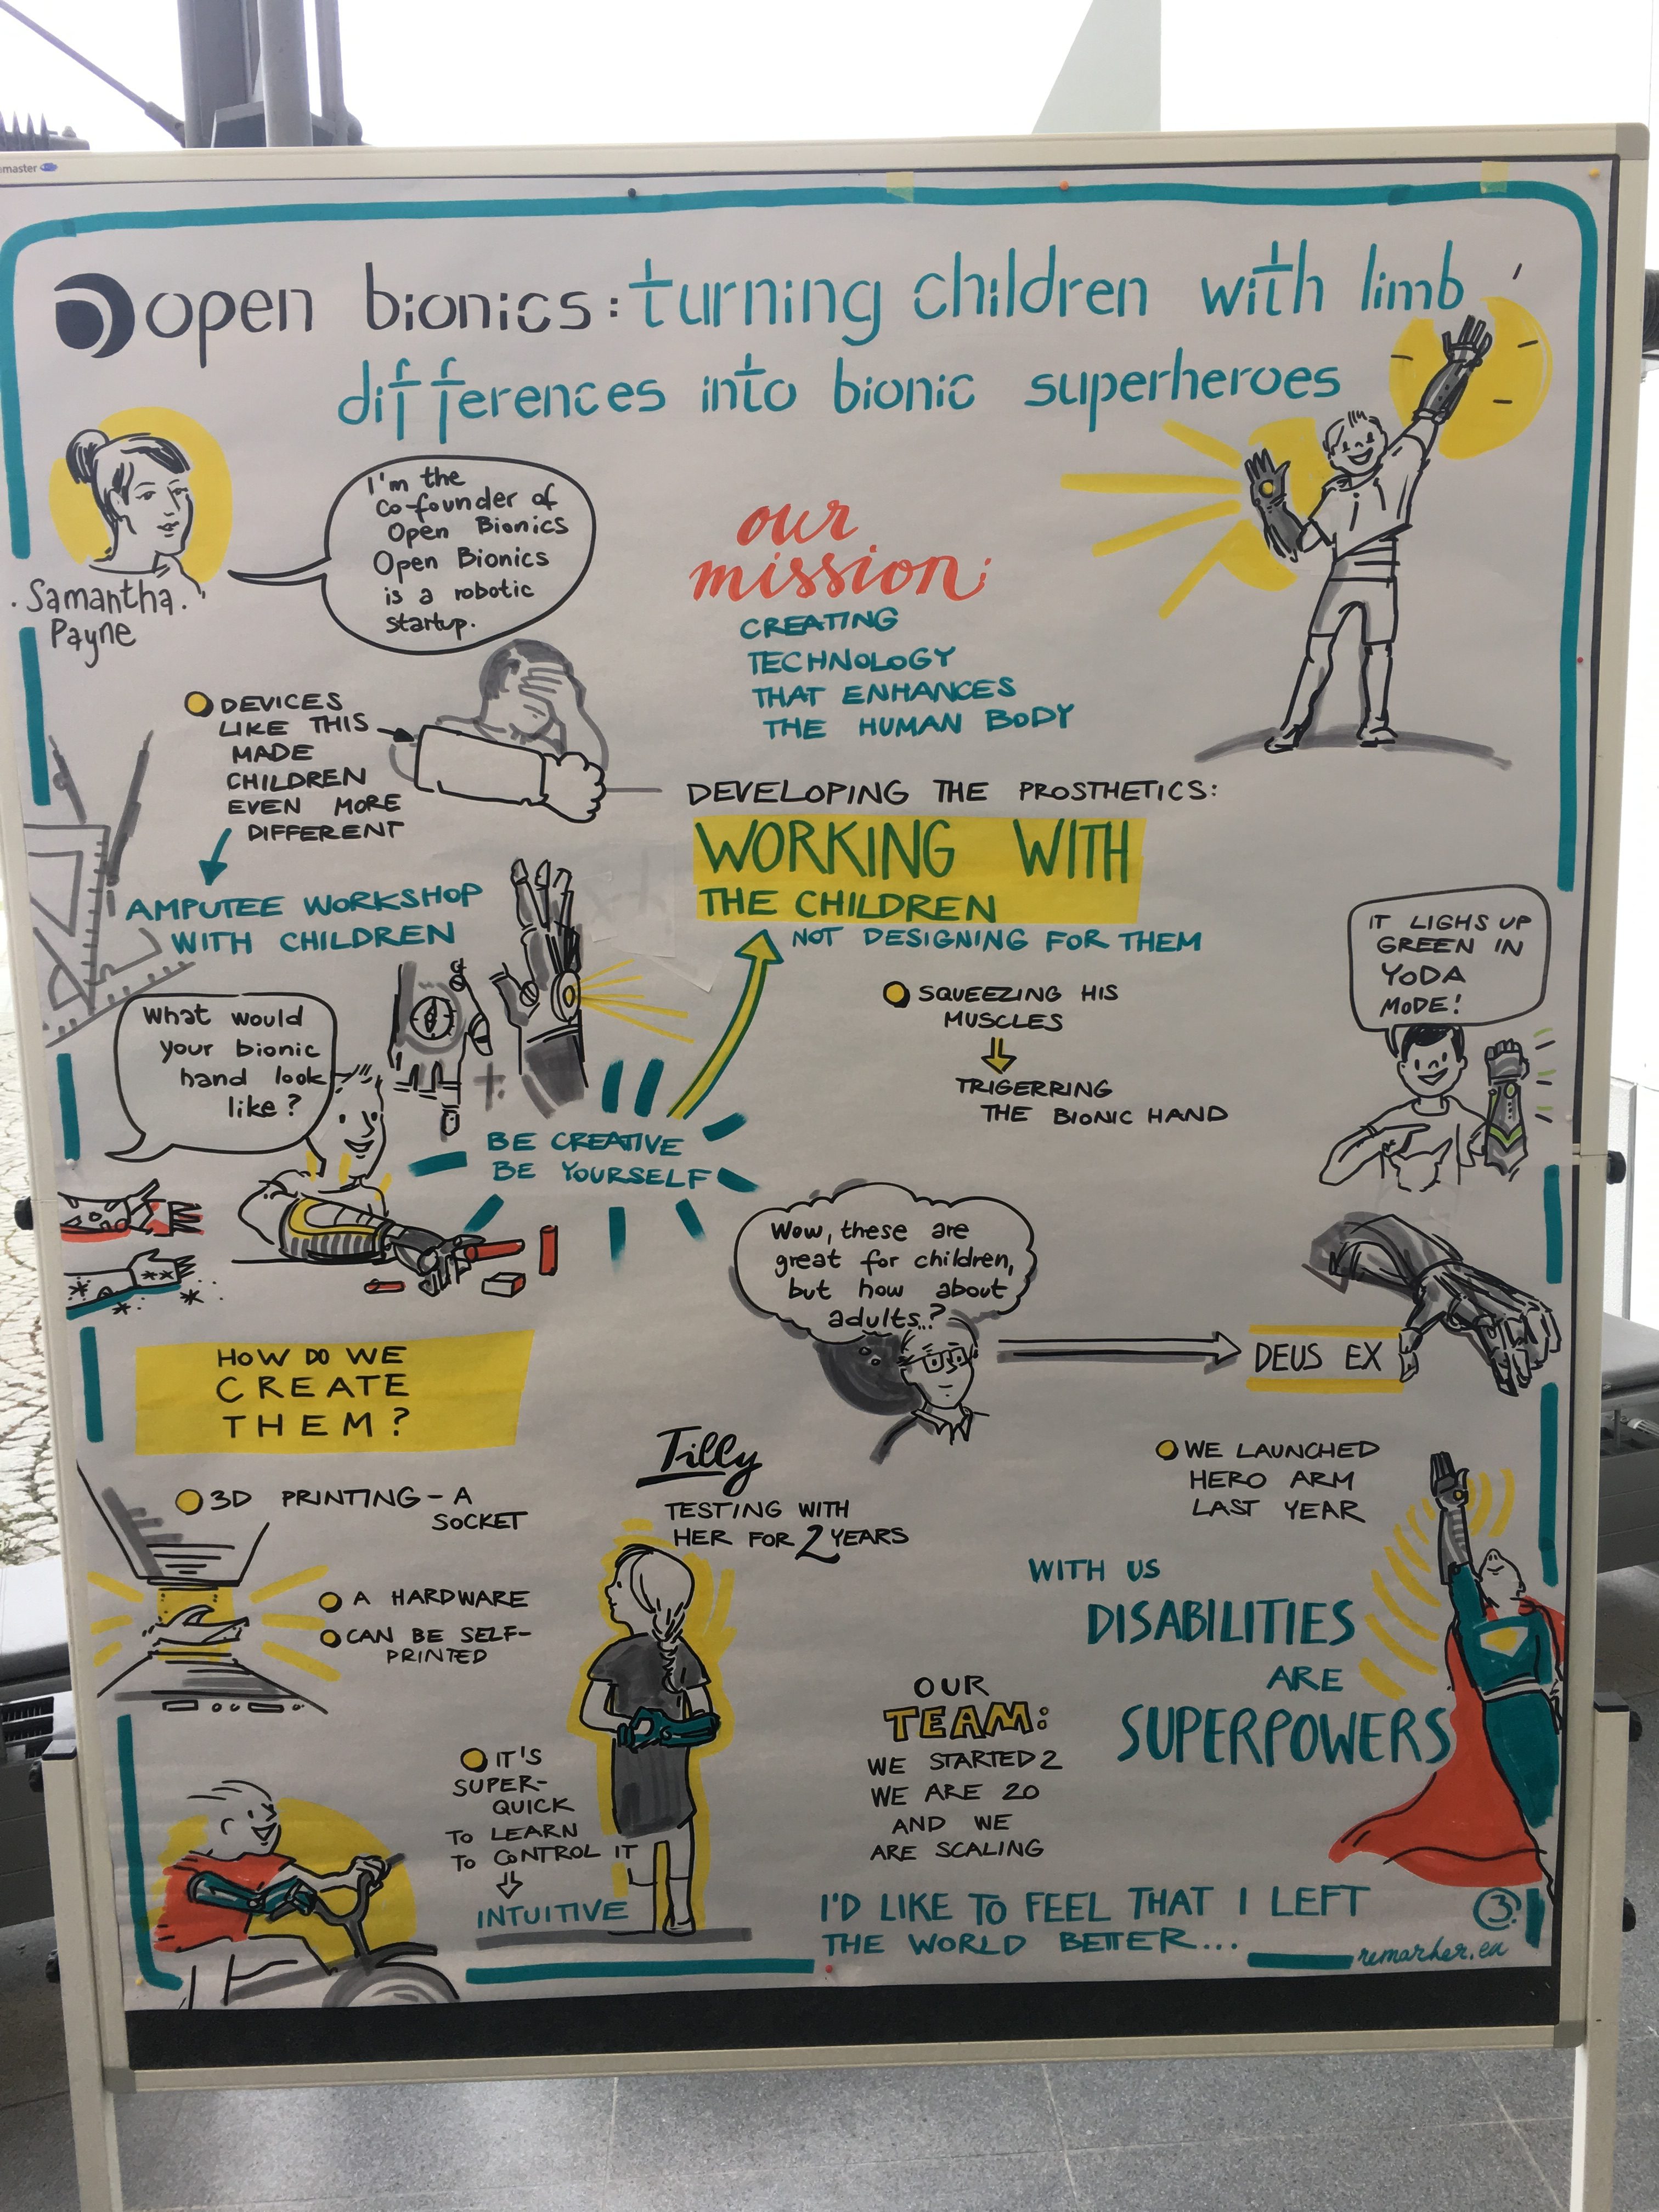 master
open bionics: turning children with limb
differences into bionic superheroes
Samantha
Payne
I'm the
co-founder of
Open Bionics
Open Bionics
is a robotic
startup.
our
mission:
CREATING
TECHNOLOGY
THAT ENHANCES
THE HUMAN BODY
DEVICES
LIKE THIS
MADE
CHILDREN
EVEN MORE
DIFFERENT
AMPUTEE WORKSHOP
WITH CHILDREN
DEVELOPING THE PROSTHETICS:
WORKING WITH
THE CHILDREN
NOT DESIGNING FOR THEM
SQUEEZING HIS
MUSCLES
TRIGERRING
THE BIONIC HAND
IT LIGHS UP
GREEN IN
YODA
MODE!
What would
your bionic
hand look
like?
BE CREATIVE
BE YOURSELF
Wow, these are
great for children,
but how about
adults..?
DEUS EX
HOW DO WE
CREATE
THEM?
3D PRINTING - A
SOCKET
A HARDWARE
CAN BE SELF-
PRINTED
Tilly
TESTING WITH
HER FOR 2 YEARS
IT'S
SUPER-
QUICK
TO LEARN
TO CONTROL IT
INTUITIVE
WE LAUNCHED
HERO ARM
LAST YEAR
WITH US
DISABILITIES
ARE
SUPERPOWERS
OUR
TEAM:
WE STARTED 2
WE ARE 20
AND WE
ARE SCALING
I'D LIKE TO FEEL THAT I LEFT
THE WORLD BETTER...
3
remarker.eu